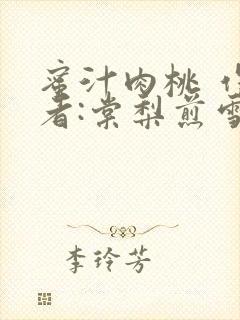 蜜汁肉桃
者:棠梨煎雪
李玲芳